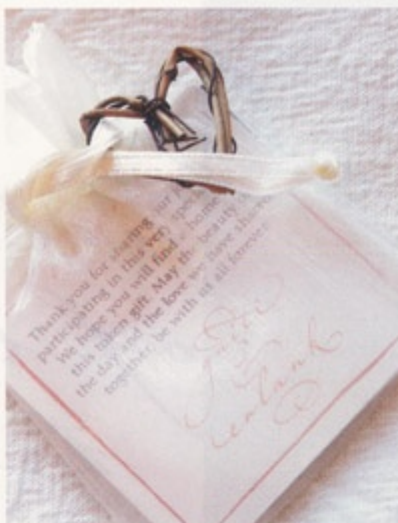 Thank you for sharing our
participating in this very spec
We hope you will find a home
this token gift. May the beauty o
the day and the love we have share
together be with us all forever
&